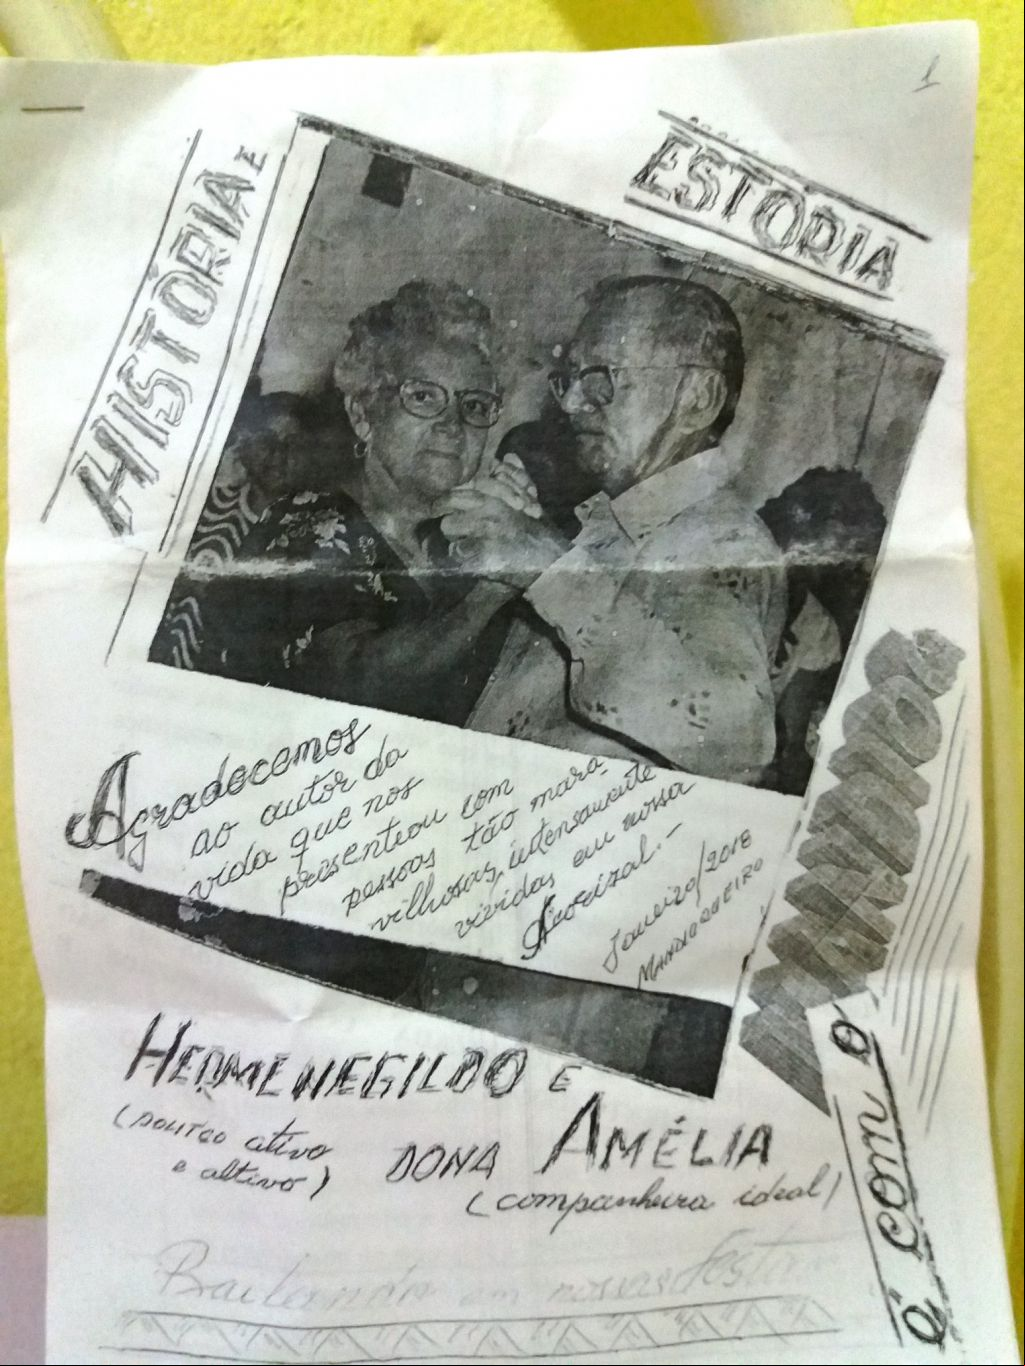 1
HISTÓRIA E
ESTÓRIA
Agradecemos
ao autor da
vida que nos
presenteou com
pessoas tão mara-
vilhosas, intensamente
vividas em nossa
Acorizal.-
Janeiro/2018
HERMENEGILDO E
(político ativo
e altivo)
DONA AMÉLIA
(companheira ideal)
Bailando em nossas festas
É COM O
MANDIO